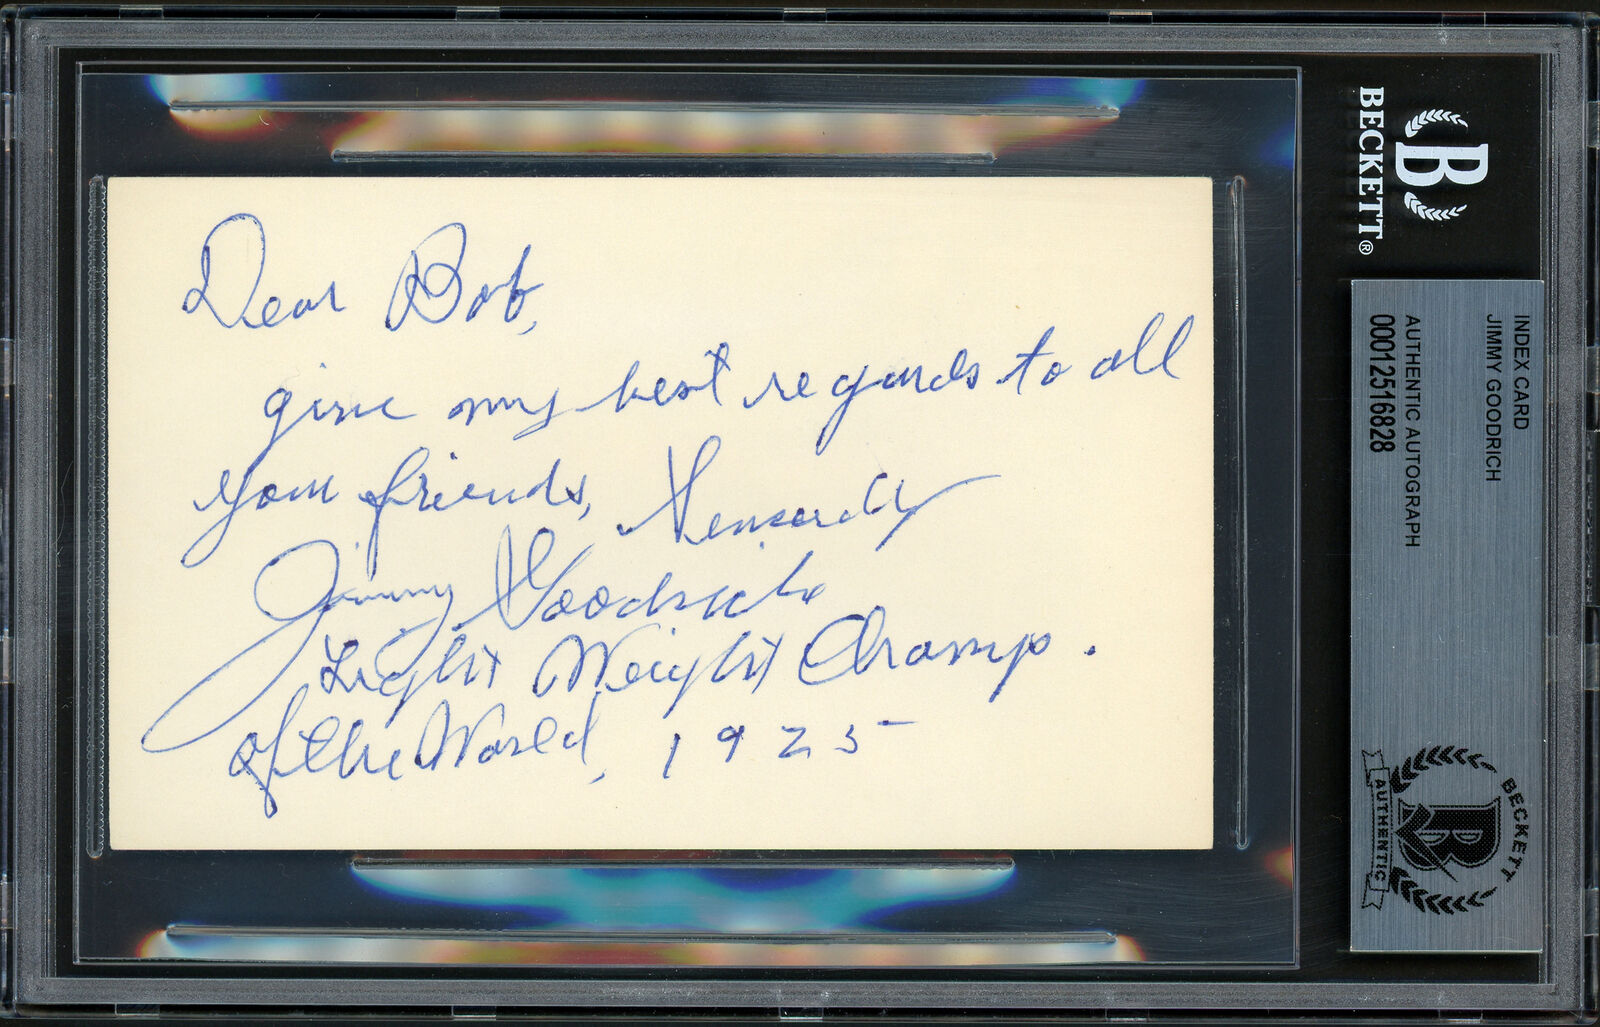 Dear Bob,
give my best regards to all
your friends, Sincerely
Jimmy Goodrich
Light Weight Champ.
of the World, 1925
BECKETT®
B
INDEX CARD
JIMMY GOODRICH
AUTHENTIC AUTOGRAPH
00012516828
BECKETT
B
AUTHENTIC